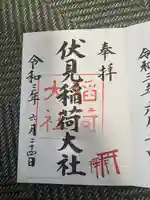 奉拝
伏見稲荷大社
稲荷
大社
令和三年 六月二十四日
令和三年 六月二十